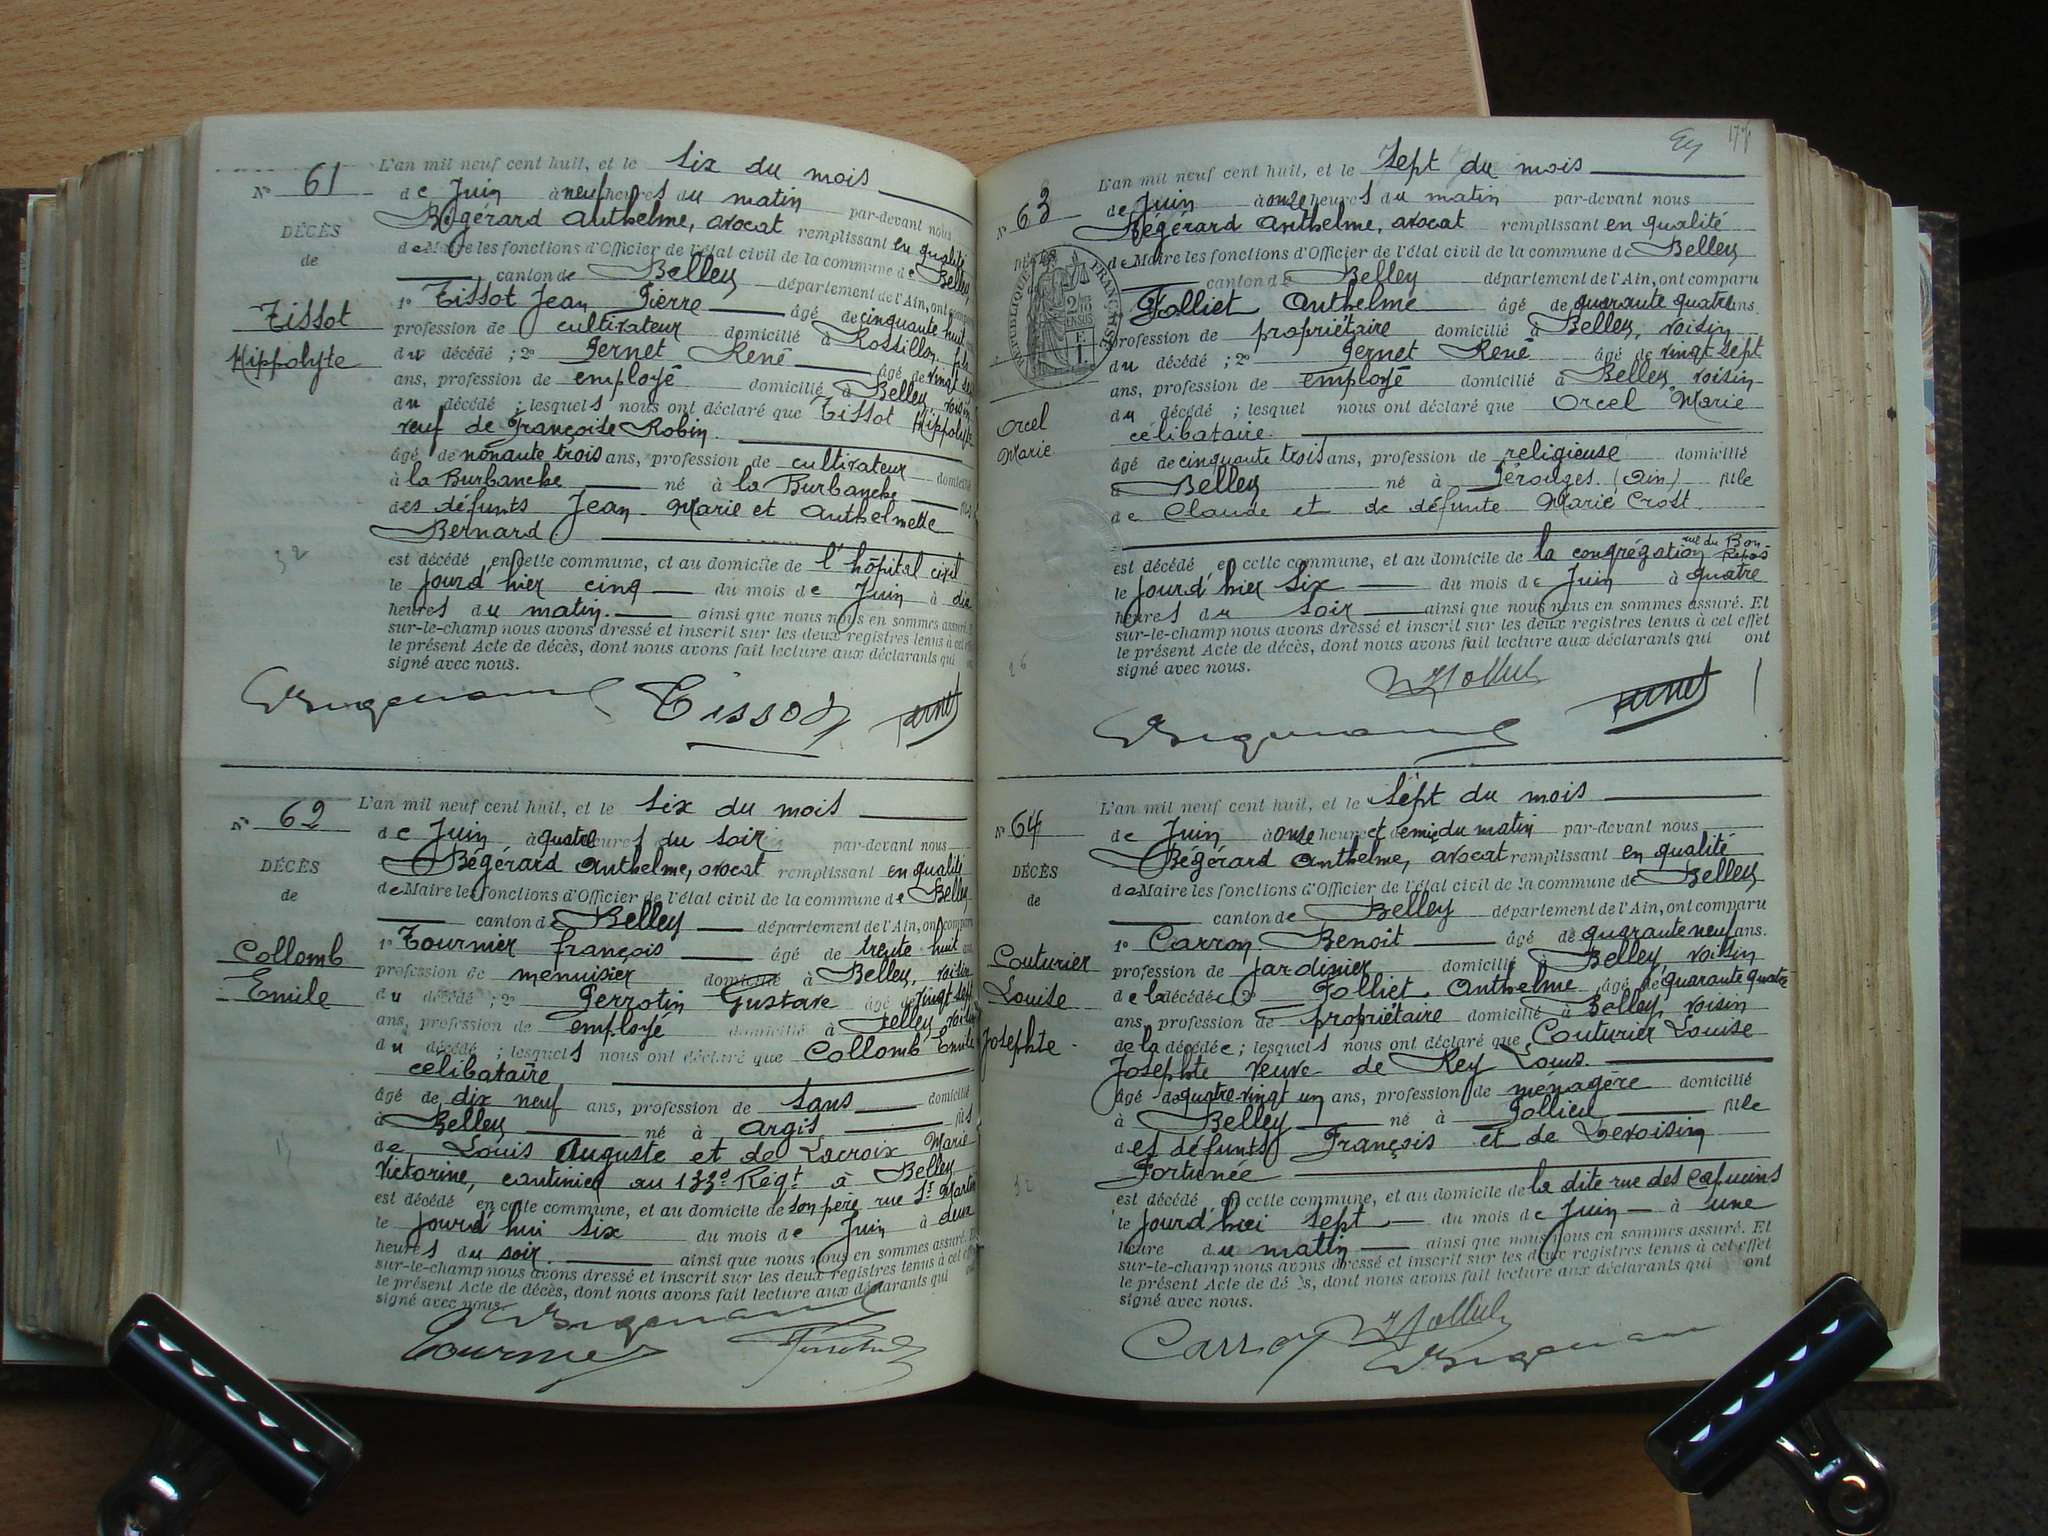 N° 61
DÉCÈS
de
Tissot
Hippolyte
L'an mil neuf cent huit, et le six du mois
de Juin à neuf heures du matin par-devant nous
Bégérard Anthelme, avocat remplissant en qualité
de Maire les fonctions d'Officier de l'état civil de la commune de Belley
canton de Belley département de l'Ain, ont comparu
1° Tissot Jean Pierre âgé de cinquante huit
profession de cultivateur domicilié à Rossillon, fils
du décédé ; 2° Pernet René âgé de vingt sept
ans, profession de employé domicilié à Belley, voisin
du décédé ; lesquels nous ont déclaré que Tissot Hippolyte
veuf de Françoise Robin.
âgé de nonante trois ans, profession de cultivateur domicilié
à la Burbanche né à la Burbanche fils
des défunts Jean Marie et Anthelmette
Bernard.
est décédé en cette commune, et au domicile de l'hôpital civil
le jourd'hier cinq du mois de Juin à dix
heures du matin. ainsi que nous nous en sommes assuré. Et
sur-le-champ nous avons dressé et inscrit sur les deux registres tenus à cet effet
le présent Acte de décès, dont nous avons fait lecture aux déclarants qui ont
signé avec nous.
Tissot Pernet
N° 62
DÉCÈS
de
Collomb
Emile
L'an mil neuf cent huit, et le six du mois
de Juin à quatre heures du soir par-devant nous
Bégérard Anthelme, avocat remplissant en qualité
de Maire les fonctions d'Officier de l'état civil de la commune de Belley
canton de Belley département de l'Ain, ont comparu
1° Tournier françois âgé de trente huit ans
profession de menuisier domicilié à Belley, voisin
du décédé ; 2° Perrotin Gustave âgé de vingt sept
ans, profession de employé domicilié à Belley, voisin
du décédé ; lesquels nous ont déclaré que Collomb Emile
célibataire
âgé de dix neuf ans, profession de sans domicilié
à Belley né à Argis fils
de Louis Auguste et de Lacroix Marie
Victorine, cantinier au 133e Régt à Belley
est décédé en cette commune, et au domicile de son père rue St Martin
le jourd'hui six du mois de Juin à deux
heures du soir. ainsi que nous nous en sommes assuré. Et
sur-le-champ nous avons dressé et inscrit sur les deux registres tenus à cet effet
le présent Acte de décès, dont nous avons fait lecture aux déclarants qui ont
signé avec nous.
Tournier
N° 63
DÉCÈS
RÉPUBLIQUE FRANÇAISE
Orcel
Marie
L'an mil neuf cent huit, et le sept du mois
de Juin à onze heures du matin par-devant nous
Bégérard Anthelme, avocat remplissant en qualité
de Maire les fonctions d'Officier de l'état civil de la commune de Belley
canton de Belley département de l'Ain, ont comparu
Folliet Anthelme âgé de quarante quatre ans.
profession de propriétaire domicilié à Belley, voisin
du décédé ; 2° Pernet René âgé de vingt sept
ans, profession de employé domicilié à Belley, voisin
du décédé ; lesquel nous ont déclaré que Orcel Marie
célibataire.
âgé de cinquante trois ans, profession de religieuse domicilié
à Belley né à Pérouges (Ain) fille
de Claude et de défunte Marie Crost.
est décédé en cette commune, et au domicile de la congrégation rue du Bon-Repos
le jourd'hier six du mois de Juin à quatre
heures du soir ainsi que nous nous en sommes assuré. Et
sur-le-champ nous avons dressé et inscrit sur les deux registres tenus à cet effet
le présent Acte de décès, dont nous avons fait lecture aux déclarants qui ont
signé avec nous.
Pernet
N° 64
DÉCÈS
de
Couturier
Louise
Josephte
L'an mil neuf cent huit, et le sept du mois
de Juin à onze heures et demie du matin par-devant nous
Bégérard Anthelme, avocat remplissant en qualité
de Maire les fonctions d'Officier de l'état civil de la commune de Belley
canton de Belley département de l'Ain, ont comparu
1° Carron Benoit âgé de quarante neuf ans.
profession de jardinier domicilié à Belley, voisin
de la décédée 2° Folliet Anthelme âgé de quarante quatre
ans, profession de propriétaire domicilié à Belley, voisin
de la décédée ; lesquels nous ont déclaré que Couturier Louise
Josephte veuve de Rey Louis.
âgé de quatre-vingt un ans, profession de ménagère domicilié
à Belley né à Pollieu fille
des défunts François et de Levoisin
Fortunée
est décédé en cette commune, et au domicile de la dite rue des Capucins
le jourd'hui sept du mois de Juin à une
heure du matin ainsi que nous nous en sommes assuré. Et
sur-le-champ nous avons dressé et inscrit sur les deux registres tenus à cet effet
le présent Acte de décès, dont nous avons fait lecture aux déclarants qui ont
signé avec nous.
Carron